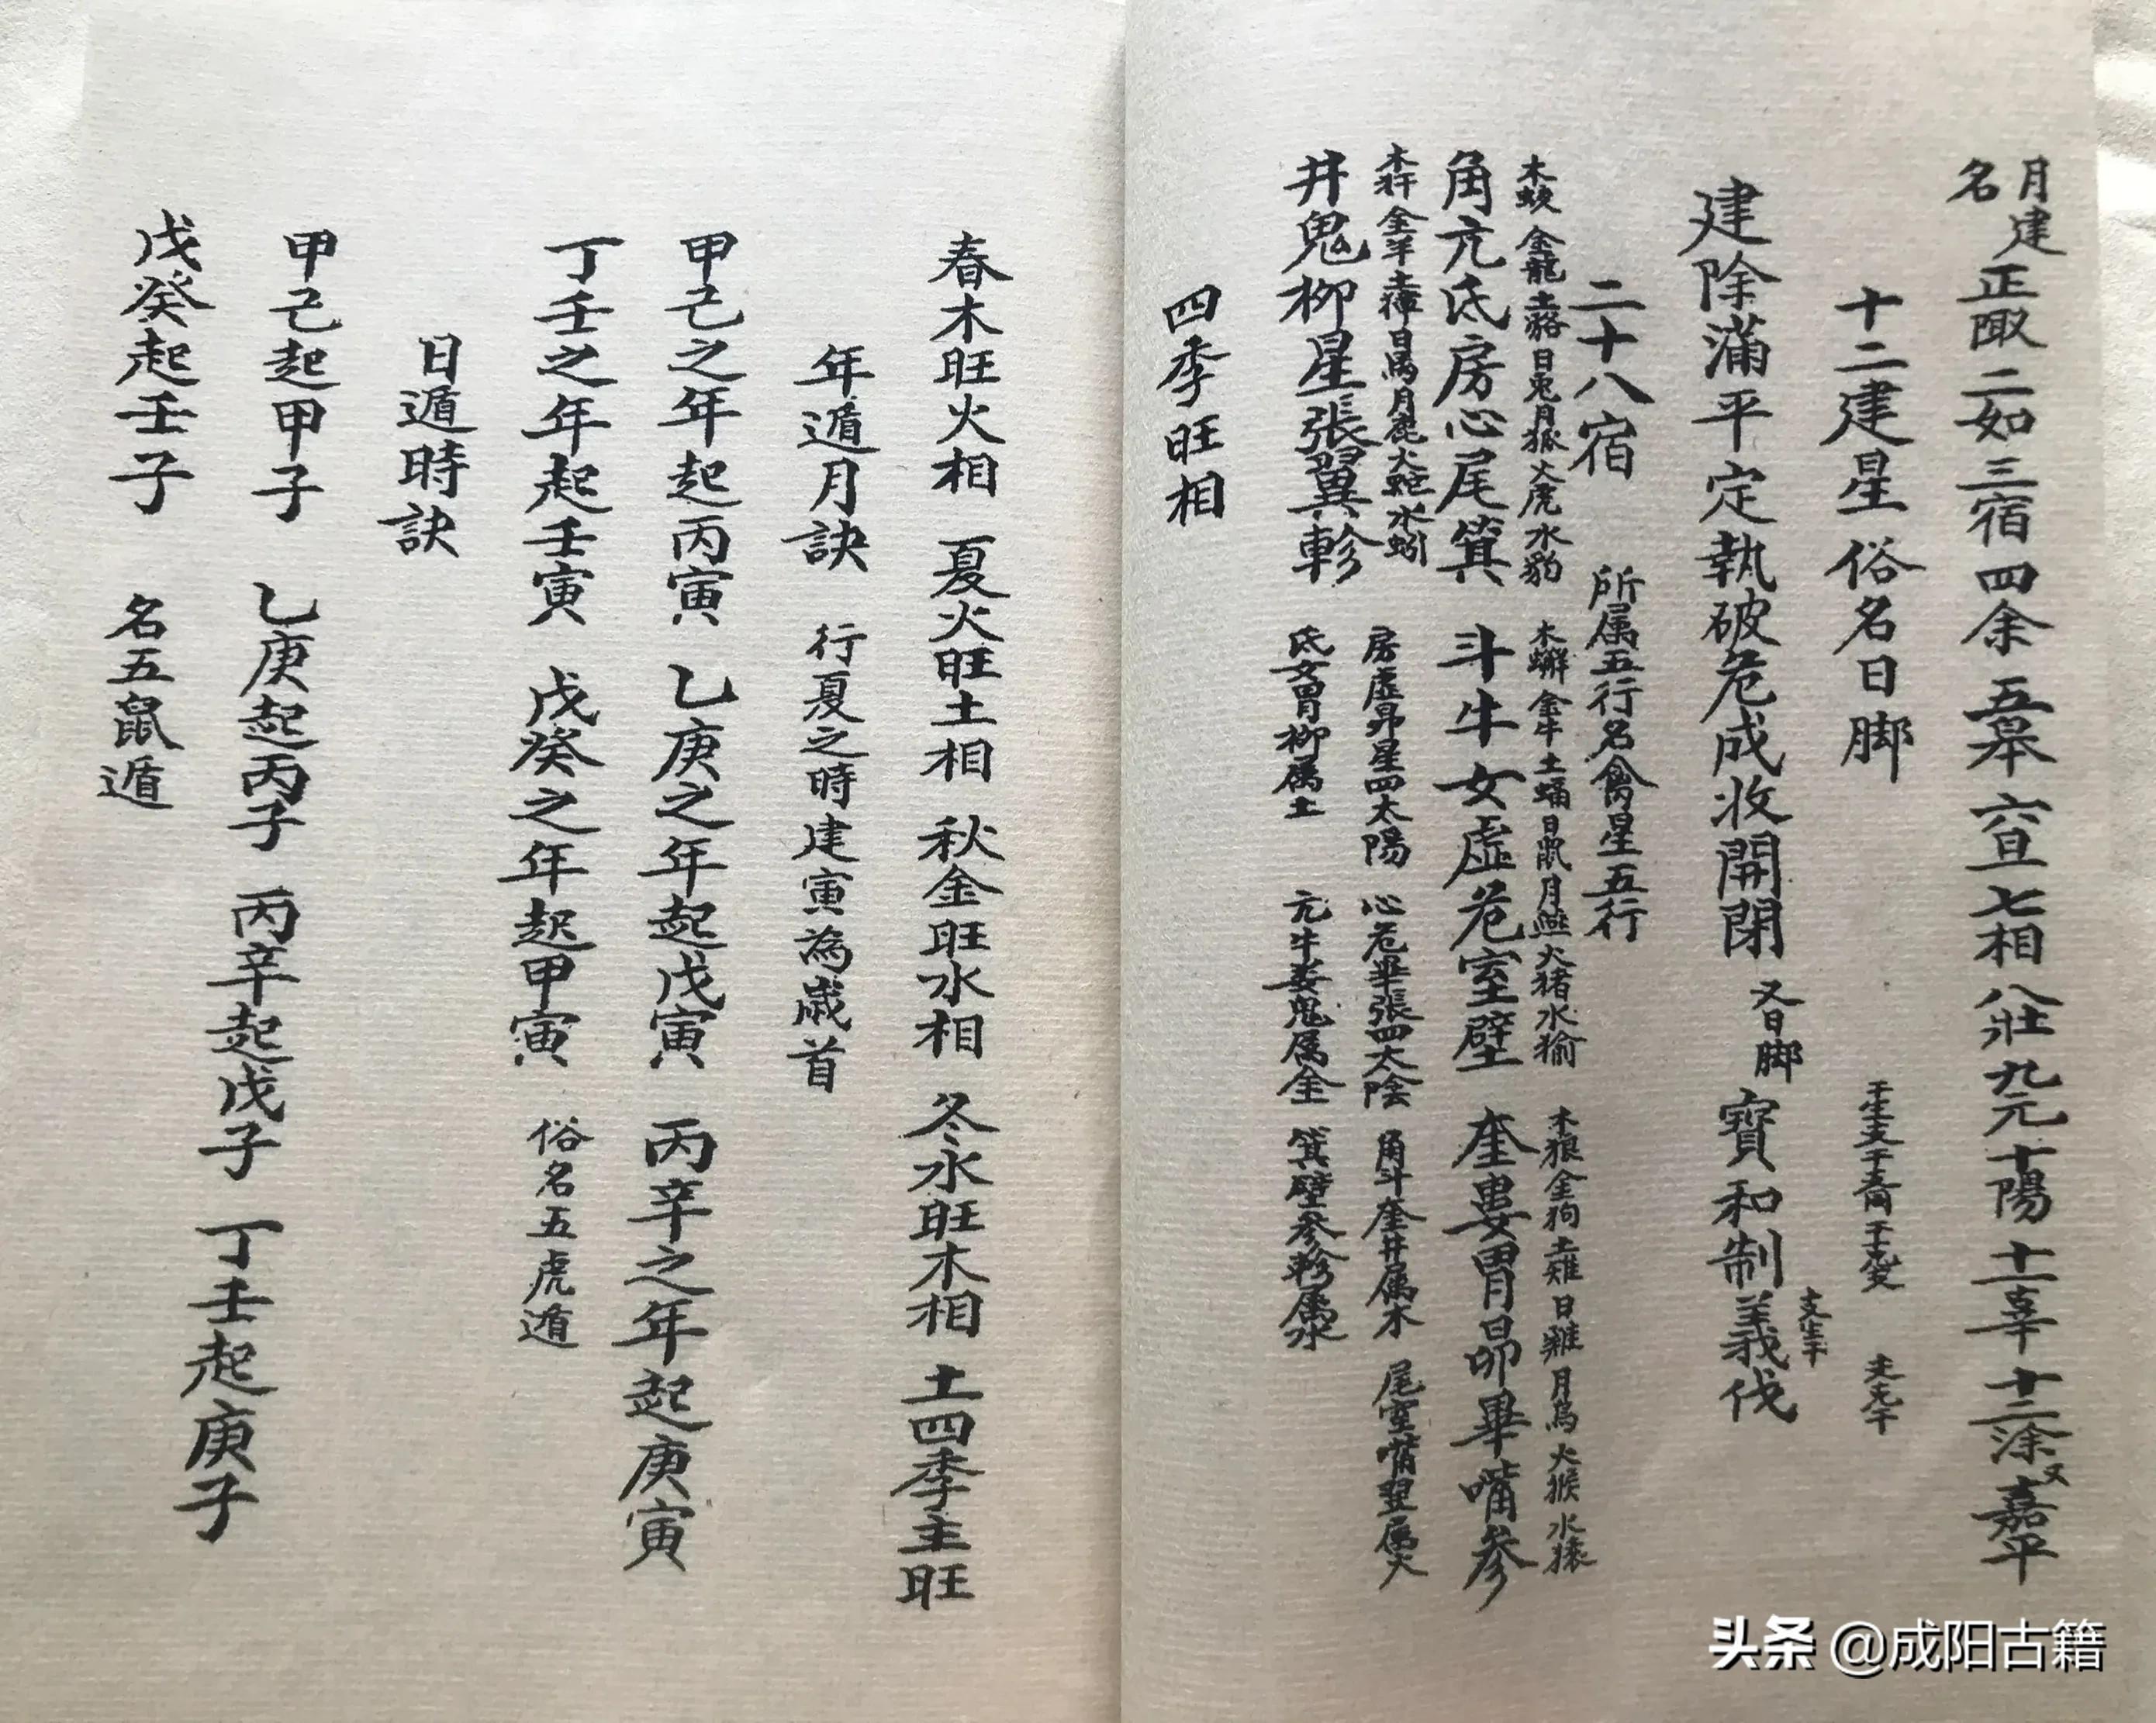 月建名 正陬 二如 三宿 四余 五皋 六旦 七相 八壯 九元 十陽 十一辜 十二涂 又嘉平
十二建星 俗名日脚
干生支 干支同 干克支 支克干
建除滿平定執破危成收開閉 又日脚 寶和制義伐
支生干
二十八宿 所属五行名禽星五行
木蛟 金龍 土貉 日兎 月狐 火虎 水豹 木獬 金牛 土蝠 日鼠 月燕 火猪 水㺄 木狼 金狗 土雉 日雞 月烏 火猴 水猿
角亢氐房心尾箕 斗牛女虛危室壁 奎婁胃昴畢嘴參
木犴 金羊 土獐 日馬 月鹿 火蛇 水蚓
井鬼柳星張翼軫
房虛昴星四太陽 心危畢張四太陰 角斗奎井属木 尾室嘴翌属火
氐女胃柳属土 亢牛娄鬼属金 箕壁參軫属水
四季旺相
春木旺火相 夏火旺土相 秋金旺水相 冬水旺木相 土四季主旺
年遁月訣 行夏之時建寅為歲首
甲己之年起丙寅 乙庚之年起戊寅 丙辛之年起庚寅
丁壬之年起壬寅 戊癸之年起甲寅 俗名五虎遁
日遁時訣
甲己起甲子 乙庚起丙子 丙辛起戊子 丁壬起庚子
戊癸起壬子 名五鼠遁
头条 @成阳古籍